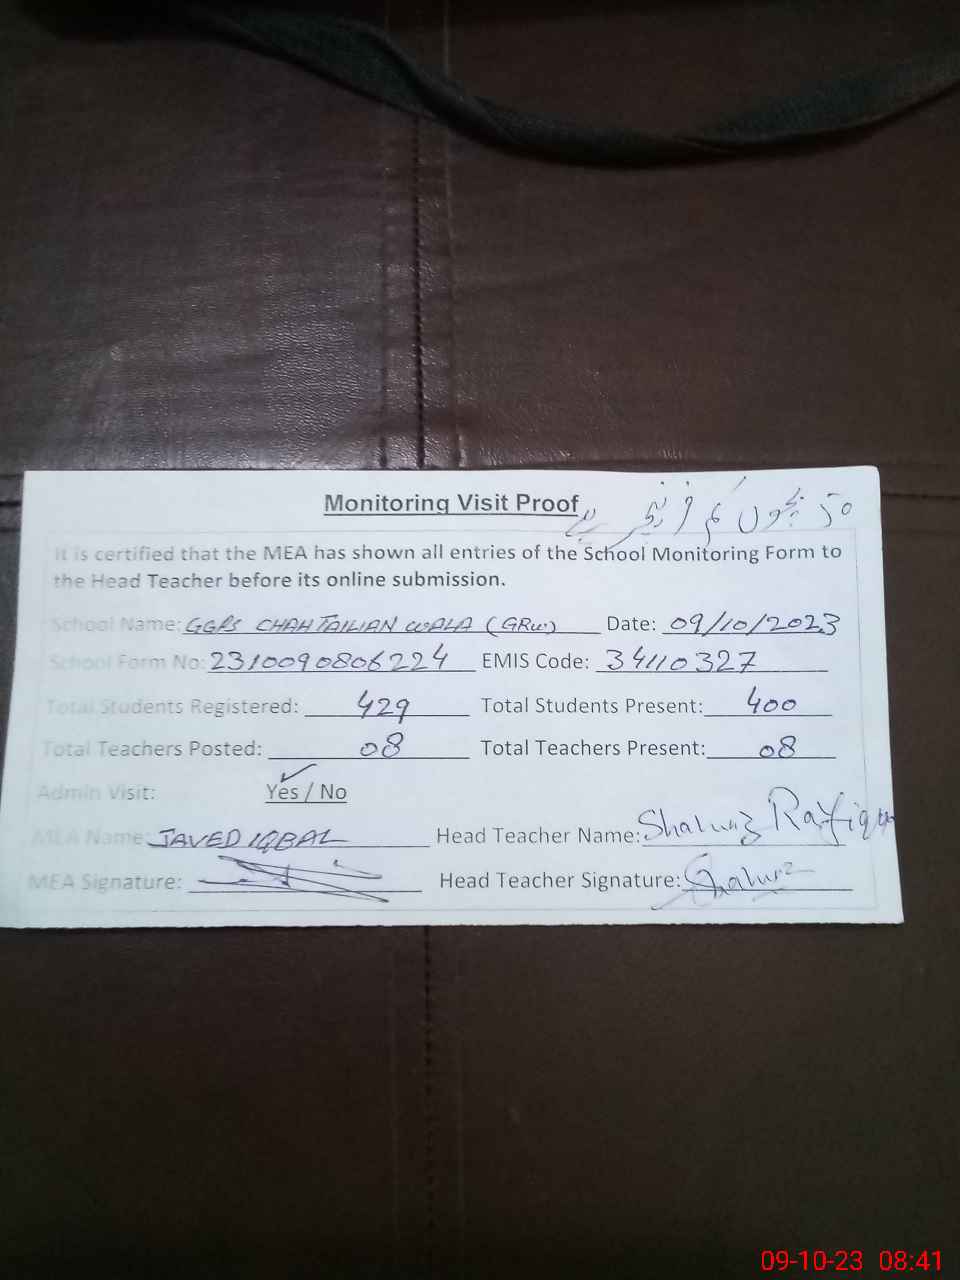 Monitoring Visit Proof
It is certified that the MEA has shown all entries of the School Monitoring Form to
the Head Teacher before its online submission.
School Name: GGPS CHAH TAILIAN WALA (GRW) Date: 09/10/2023
School Form No: 2310090806224 EMIS Code: 34110327
Total Students Registered: 429 Total Students Present: 400
Total Teachers Posted: 08 Total Teachers Present: 08
Admin Visit: Yes / No
MEA Name: JAVED IQBAL Head Teacher Name: Rafique
MEA Signature: Head Teacher Signature:
09-10-23 08:41